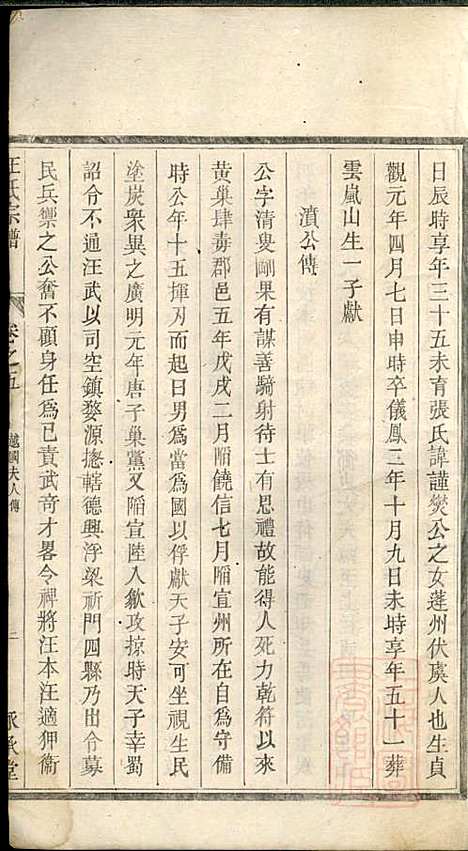 日辰時享年三十五未育張氏諱謹爕公之女蓬州伏虞人也生貞
觀元年四月七日申時卒儀鳳三年十月九日未時享年五十一葬
雲嵐山生一子獻
濆公傳
公字清叟剛果有謀善騎射待士有恩禮故能得人死力乾符以來
黄巢肆毒郡邑五年戊戌二月陷饒信七月陷宣州所在自爲守備
時公年十五揮刃而起曰男爲當爲國以俘獻天子安可坐視生民
塗炭衆異之廣明元年唐子巢黨又陷宣陸入歙攻掠時天子幸蜀
詔令不通汪武以司空鎮婺源摠轄德興浮梁祈門四縣乃出令募
民兵禦之公奮不顧身任爲已責武竒才畧令裨將汪本汪適狎衞
汪氏宗譜 卷之五 越國夫人傳 二 承堂